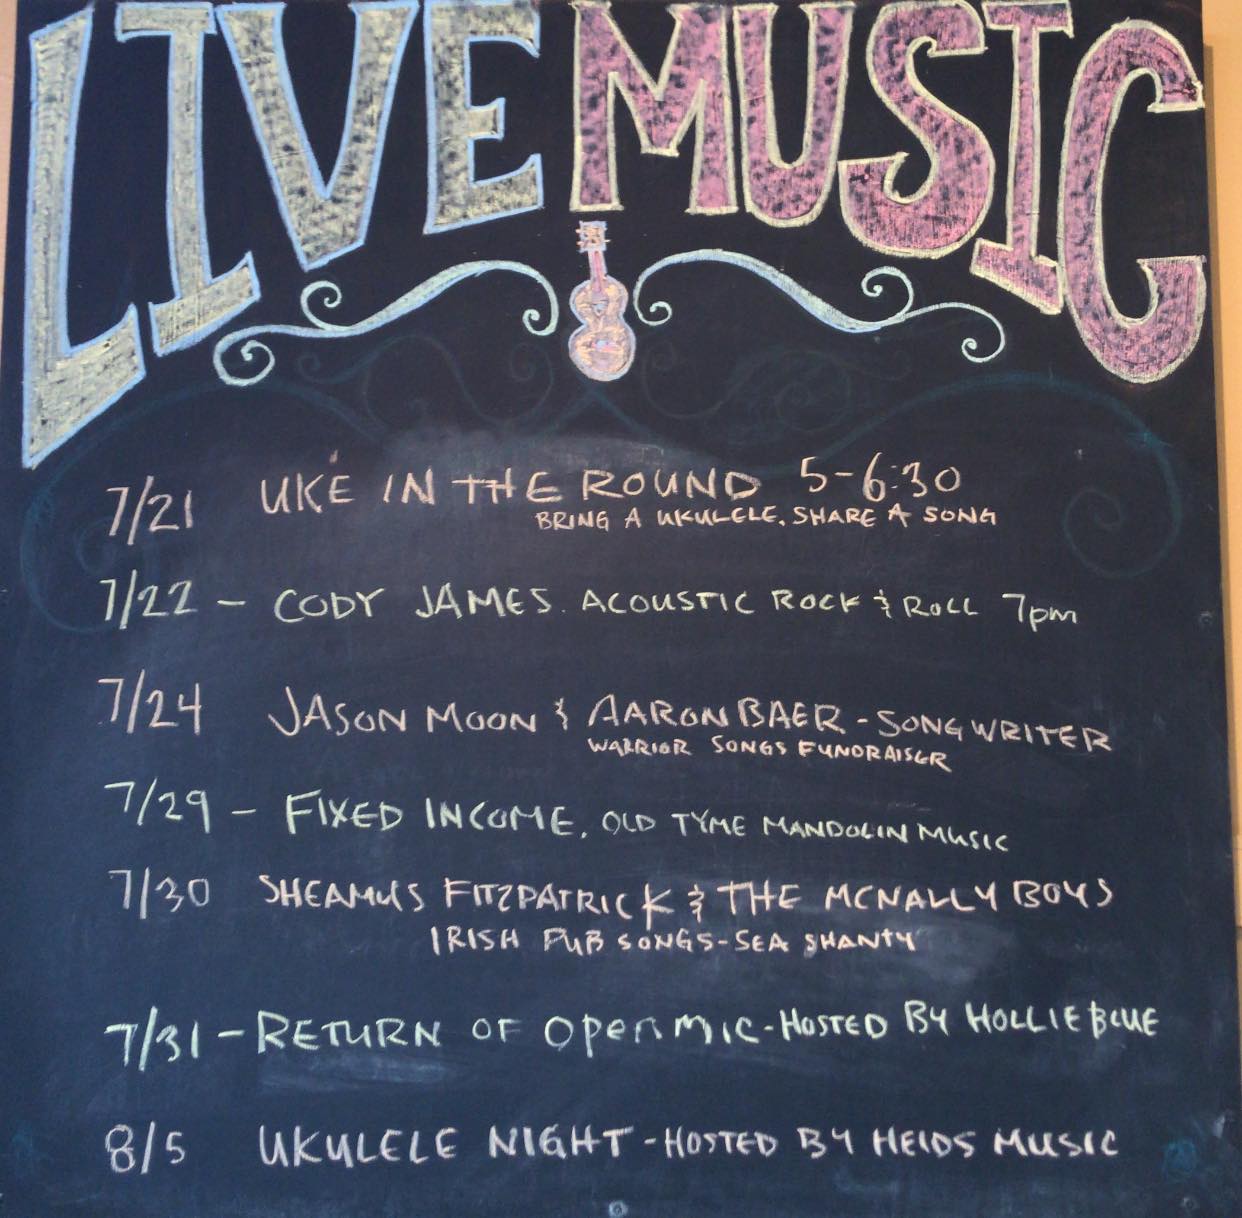 LIVE MUSIC
7/21 UKE IN THE ROUND 5-6:30
BRING A UKULELE. SHARE A SONG
7/22 - CODY JAMES. ACOUSTIC ROCK & ROLL 7pm
7/24 JASON MOON & AARON BAER - SONGWRITER
WARRIOR SONGS FUNDRAISER
7/29 - FIXED INCOME. OLD TYME MANDOLIN MUSIC
7/30 SHEAMUS FITZPATRICK & THE MCNALLY BOYS
IRISH PUB SONGS - SEA SHANTY
7/31 - RETURN OF OPEN MIC - HOSTED BY HOLLIE BLUE
8/5 UKULELE NIGHT - HOSTED BY HEIDS MUSIC